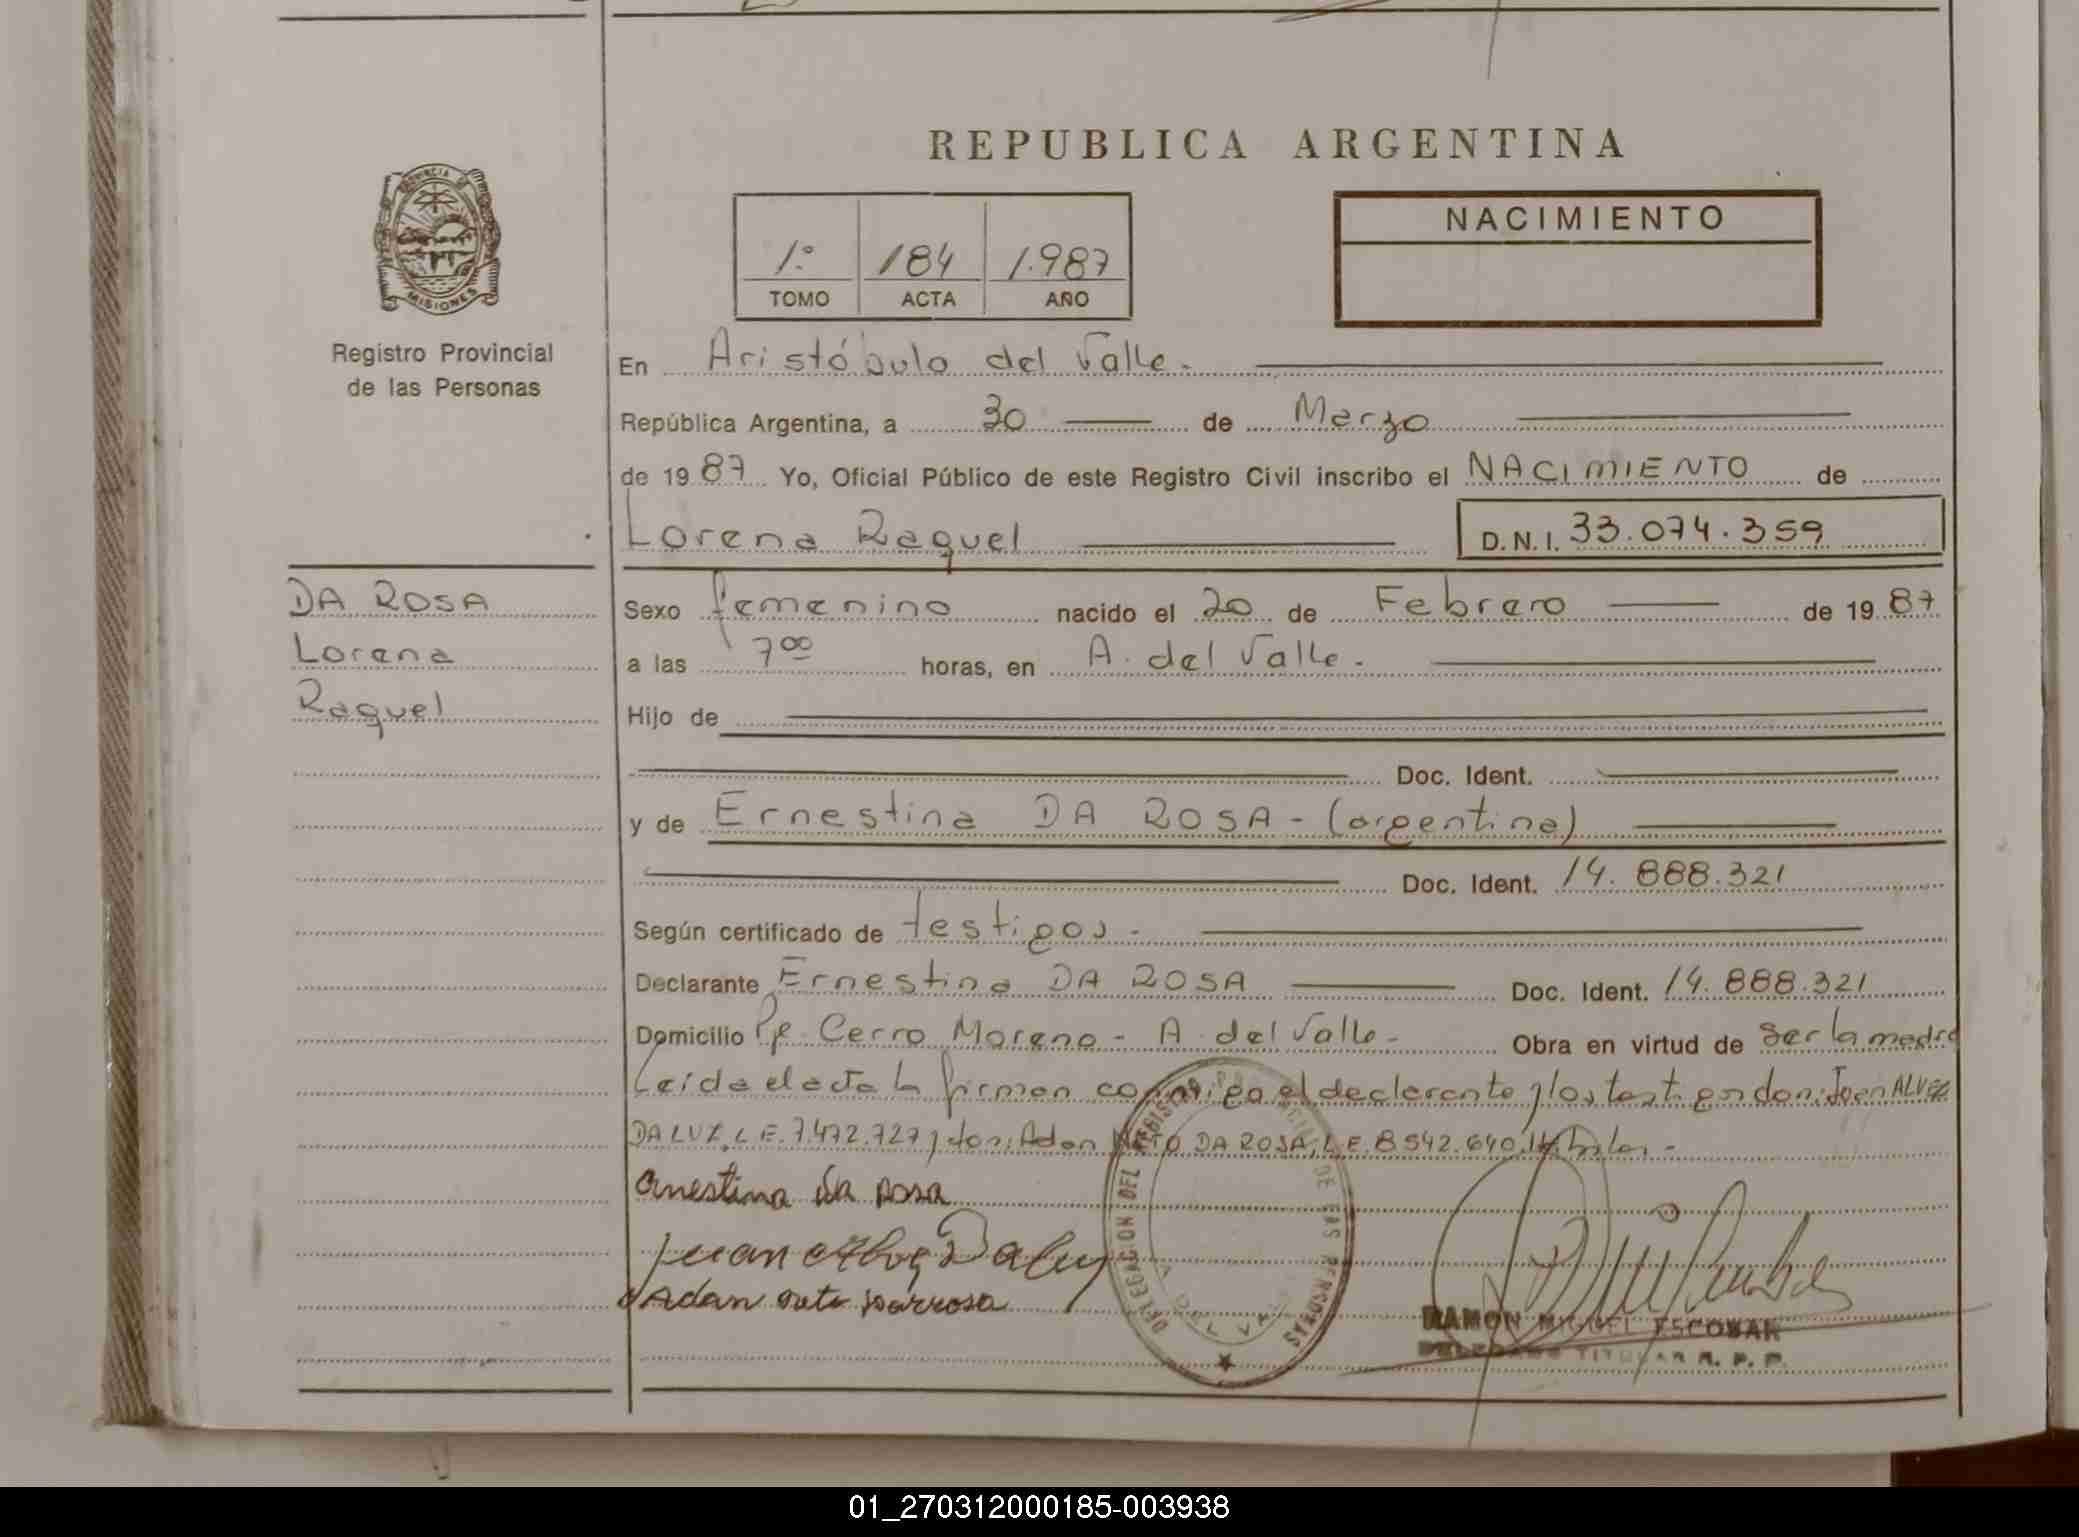 REPUBLICA ARGENTINA
PROVINCIA DE
MISIONES
Registro Provincial
de las Personas
1º 184 1.987
TOMO ACTA AÑO
NACIMIENTO
En Aristóbulo del Valle.
República Argentina, a 30 de Marzo
de 1987 Yo, Oficial Público de este Registro Civil inscribo el NACIMIENTO de
Lorena Raquel D.N.I. 33.074.359
DA ROSA
Lorena
Raquel
Sexo femenino nacido el 20 de Febrero de 1987
a las 7 00 horas, en A. del Valle.
Hijo de
Doc. Ident.
y de Ernestina DA ROSA - (argentina)
Doc. Ident. 14.888.321
Según certificado de testigos -
Declarante Ernestina DA ROSA Doc. Ident. 14.888.321
Domicilio Pje. Cerro Moreno - A. del Valle - Obra en virtud de ser la madre
Leida el acta la firman conmigo el declarante y los testigos don: Juan ALVEZ
DA LUZ, L.E. 7.472.727 y don: Adan NETO DA ROSA, L.E. 8.542.640.
ernestina da rosa
juan alvez Daluz
Adan neto
DELEGACION DEL REGISTRO PROVINCIAL DE LAS PERSONAS
A. DEL VALLE
RAMON MIGUEL ESCOBAR
DELEGADO TITULAR R. P. P.
01_270312000185-003938